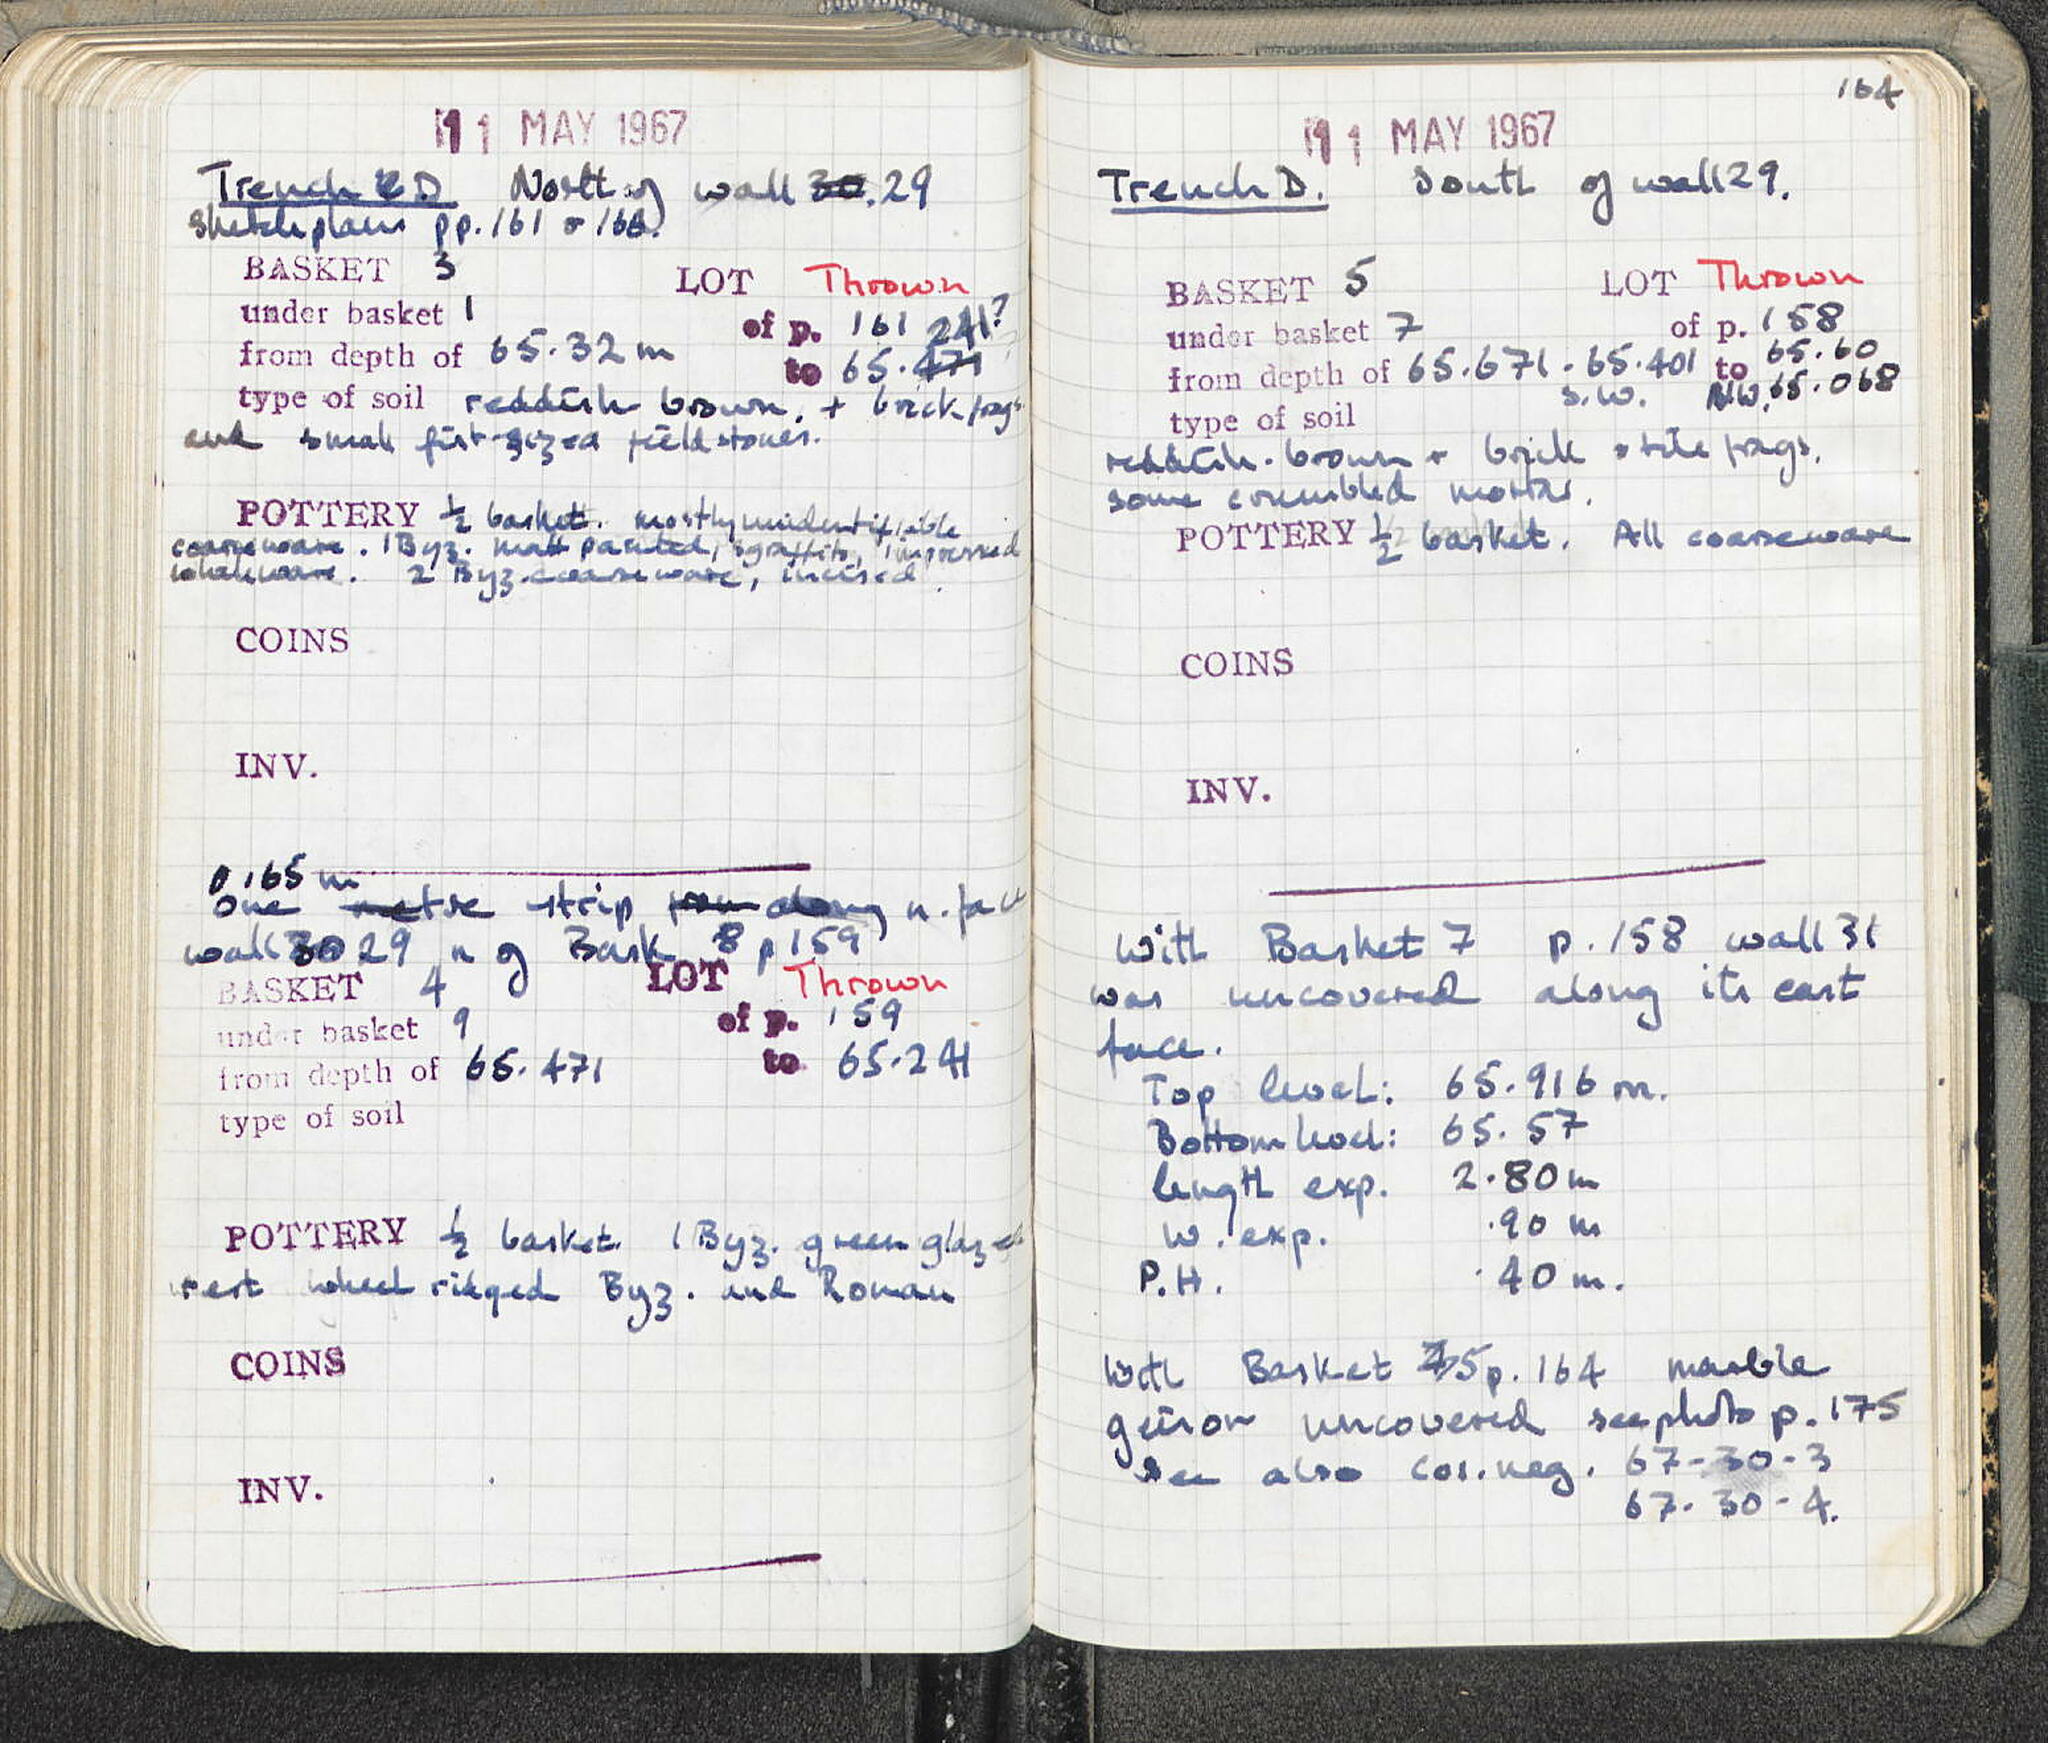 11 MAY 1967
Trench D North of wall 30. 29
Sketch plans pp. 161 + 166.
BASKET 3 LOT Thrown
under basket 1 of p. 161
from depth of 65.32 m to 65.471 241?
type of soil reddish brown. + brick frags
and small fist-sized fieldstones.
POTTERY ½ basket. mostly unidentifiable
coarseware. 1 Byz. matt painted, sgraffito, impressed
whiteware. 2 Byz. coarseware, incised.
COINS
INV.
0.165 m
One metre strip from along n. face
wall 30 29 n of Bask 8 p 159
BASKET 4 LOT Thrown
under basket 9 of p. 159
from depth of 65.471 to 65.241
type of soil
POTTERY ½ basket. 1 Byz. green glaze
rest wheel ridged Byz. and Roman
COINS
INV.
164
11 MAY 1967
Trench D. South of wall 29.
BASKET 5 LOT Thrown
under basket 7 of p. 158
from depth of 65.671 - 65.401 to 65.60
S.W. N.W. 65.068
type of soil
reddish-brown + brick + tile frags.
some crumbled mortar.
POTTERY ½ basket. All coarseware
COINS
INV.
With Basket 7 p. 158 wall 31
was uncovered along its east
face.
Top level: 65.916 m.
Bottom level: 65.57
length exp. 2.80 m
w. exp. .90 m
P.H. .40 m.
With Basket 5 p. 164 marble
geison uncovered see photo p. 175
see also cor. neg. 67-30-3
67-30-4.